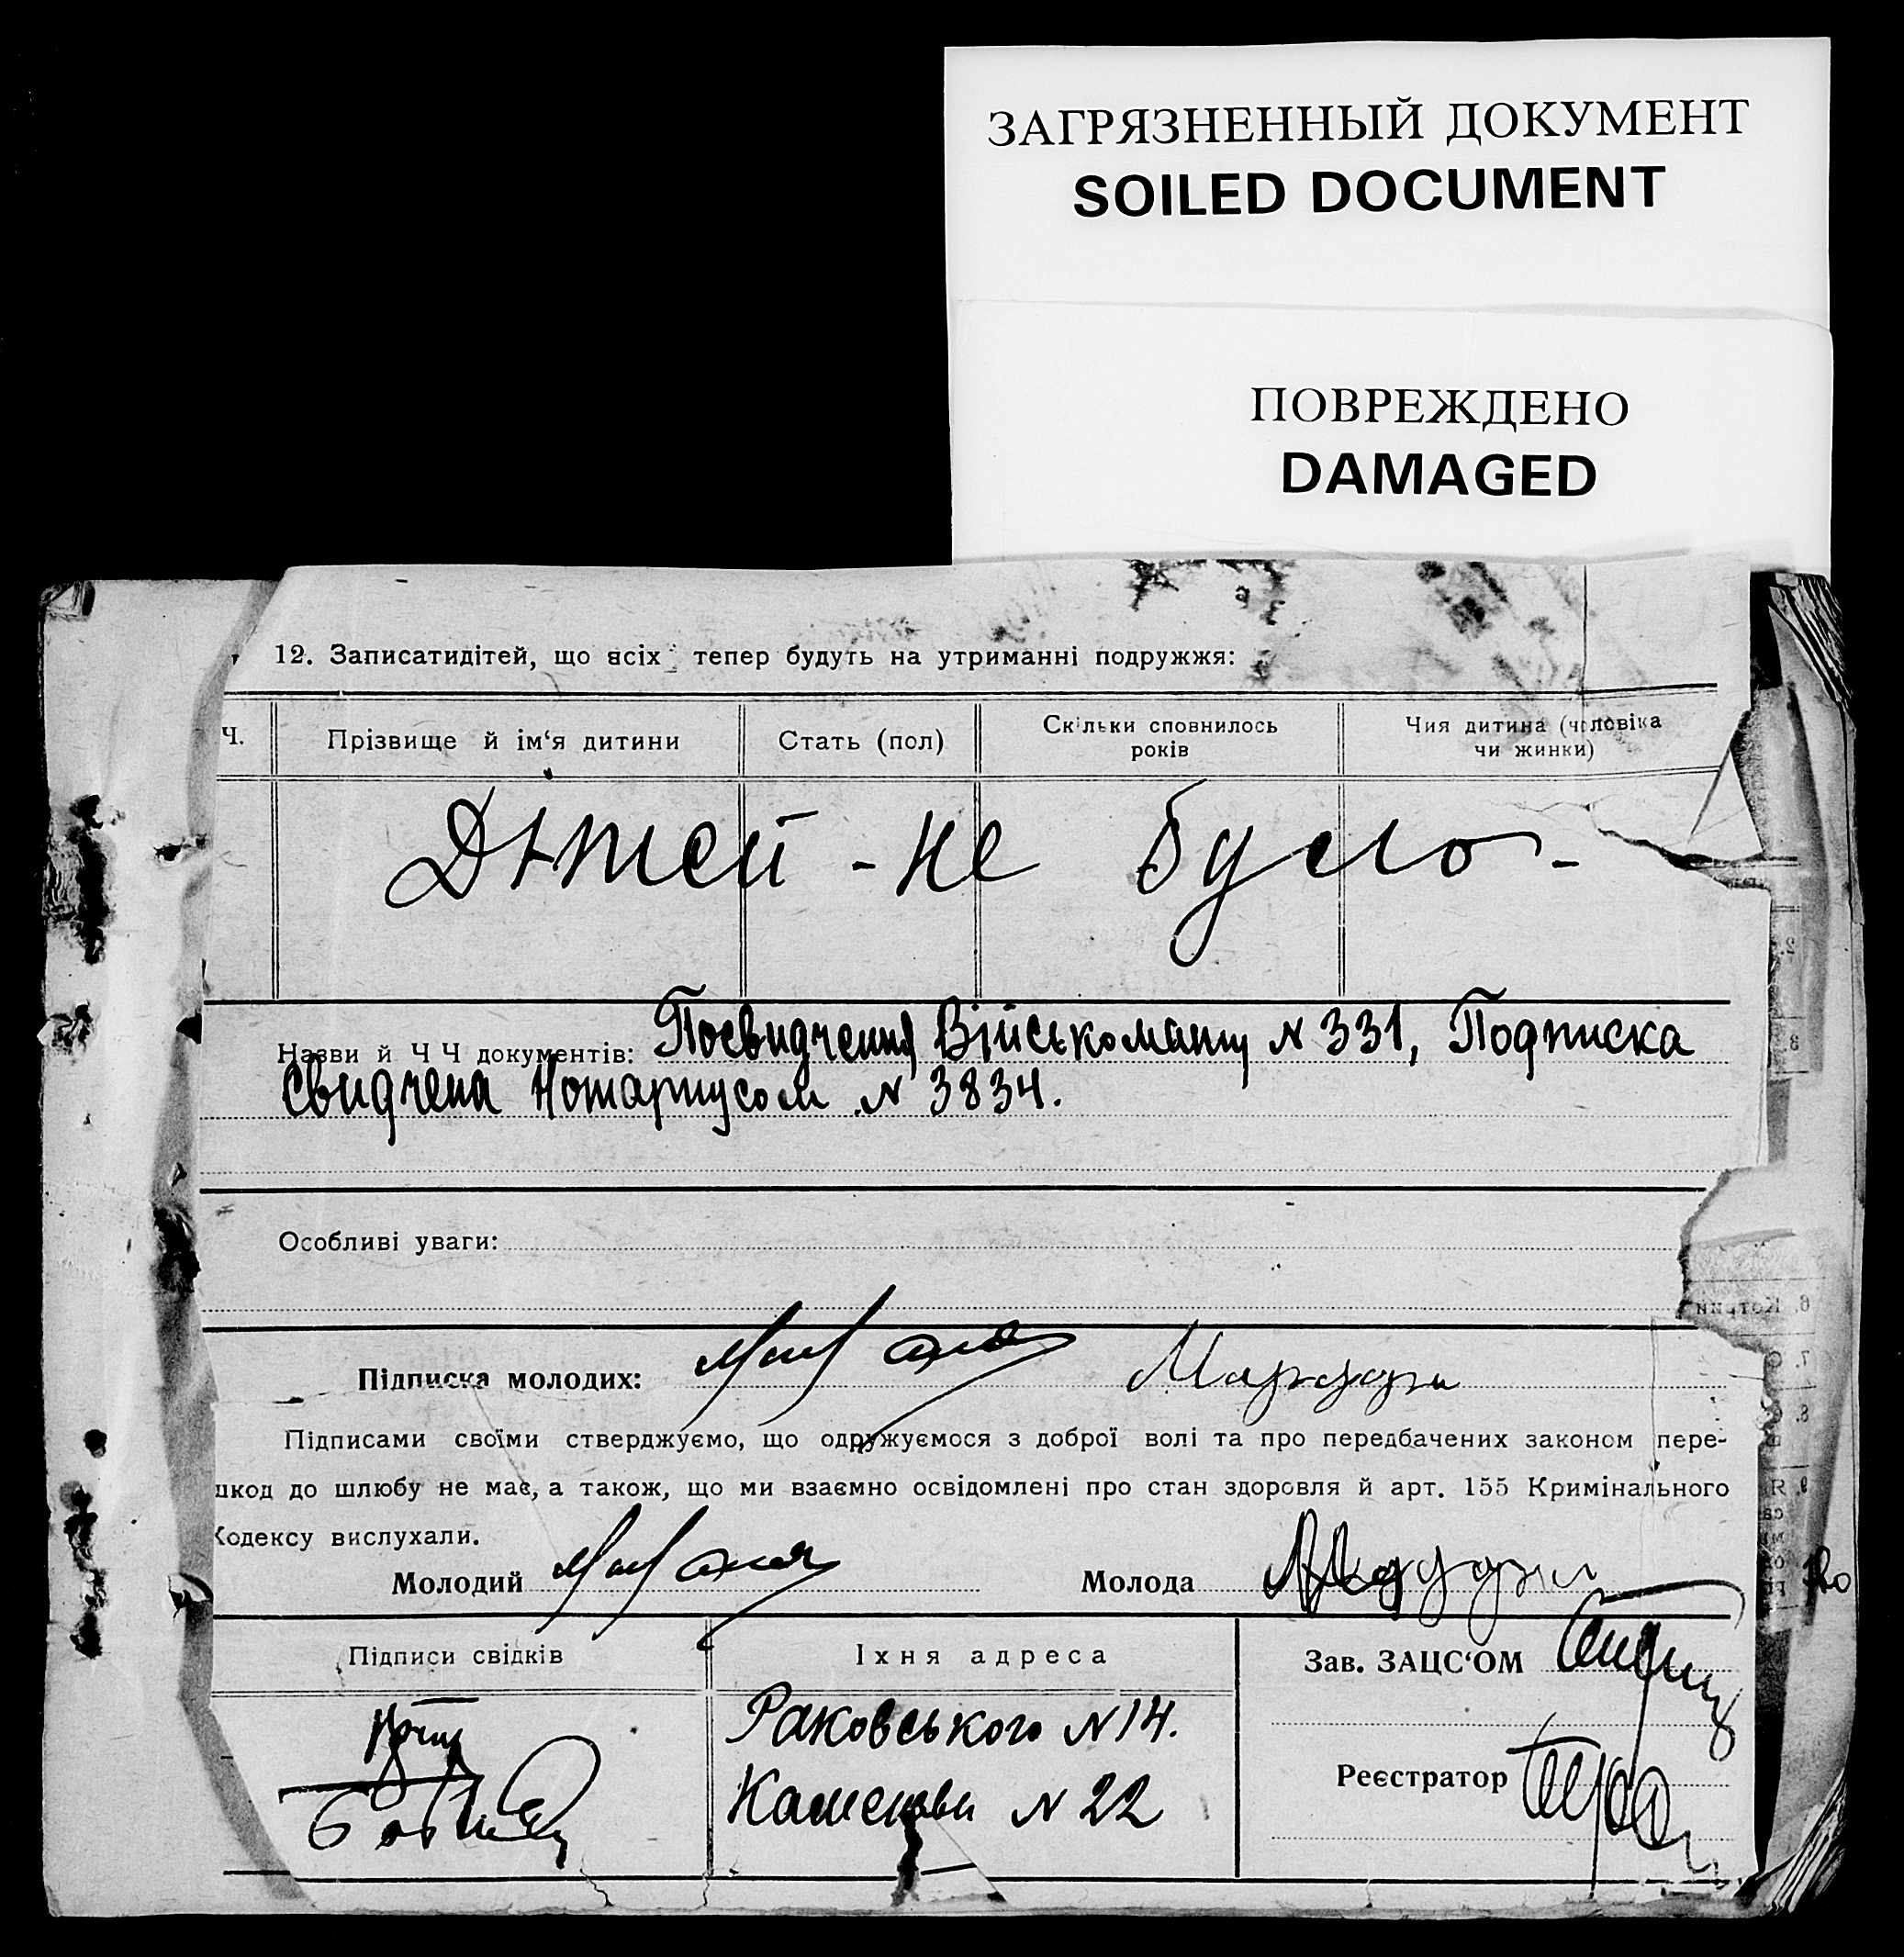 ЗАГРЯЗНЕННЫЙ ДОКУМЕНТ
SOILED DOCUMENT
ПОВРЕЖДЕНО
DAMAGED
12. Записатидітей, що всіх тепер будуть на утриманні подружжя:
Ч. Прізвище й ім‘я дитини Стать (пол) Скільки сповнилось років Чия дитина (чоловіка чи жинки)
Дітей - не було -
Назви й Ч Ч документів: Посвидчення Військомату № 331, Подписка
свидчена Нотариусом № 3834.
Особливі уваги:
Підписка молодих:
Підписами своїми стверджуємо, що одружуємося з доброї волі та про передбачених законом пере-
шкод до шлюбу не має, а також, що ми взаємно освідомлені про стан здоровля й арт. 155 Кримінального
Кодексу вислухали.
Молодий Молода
Підписи свідків Іхня адреса Зав. ЗАЦС‘ОМ
Раковського № 14.
Реєстратор
Каменева № 22